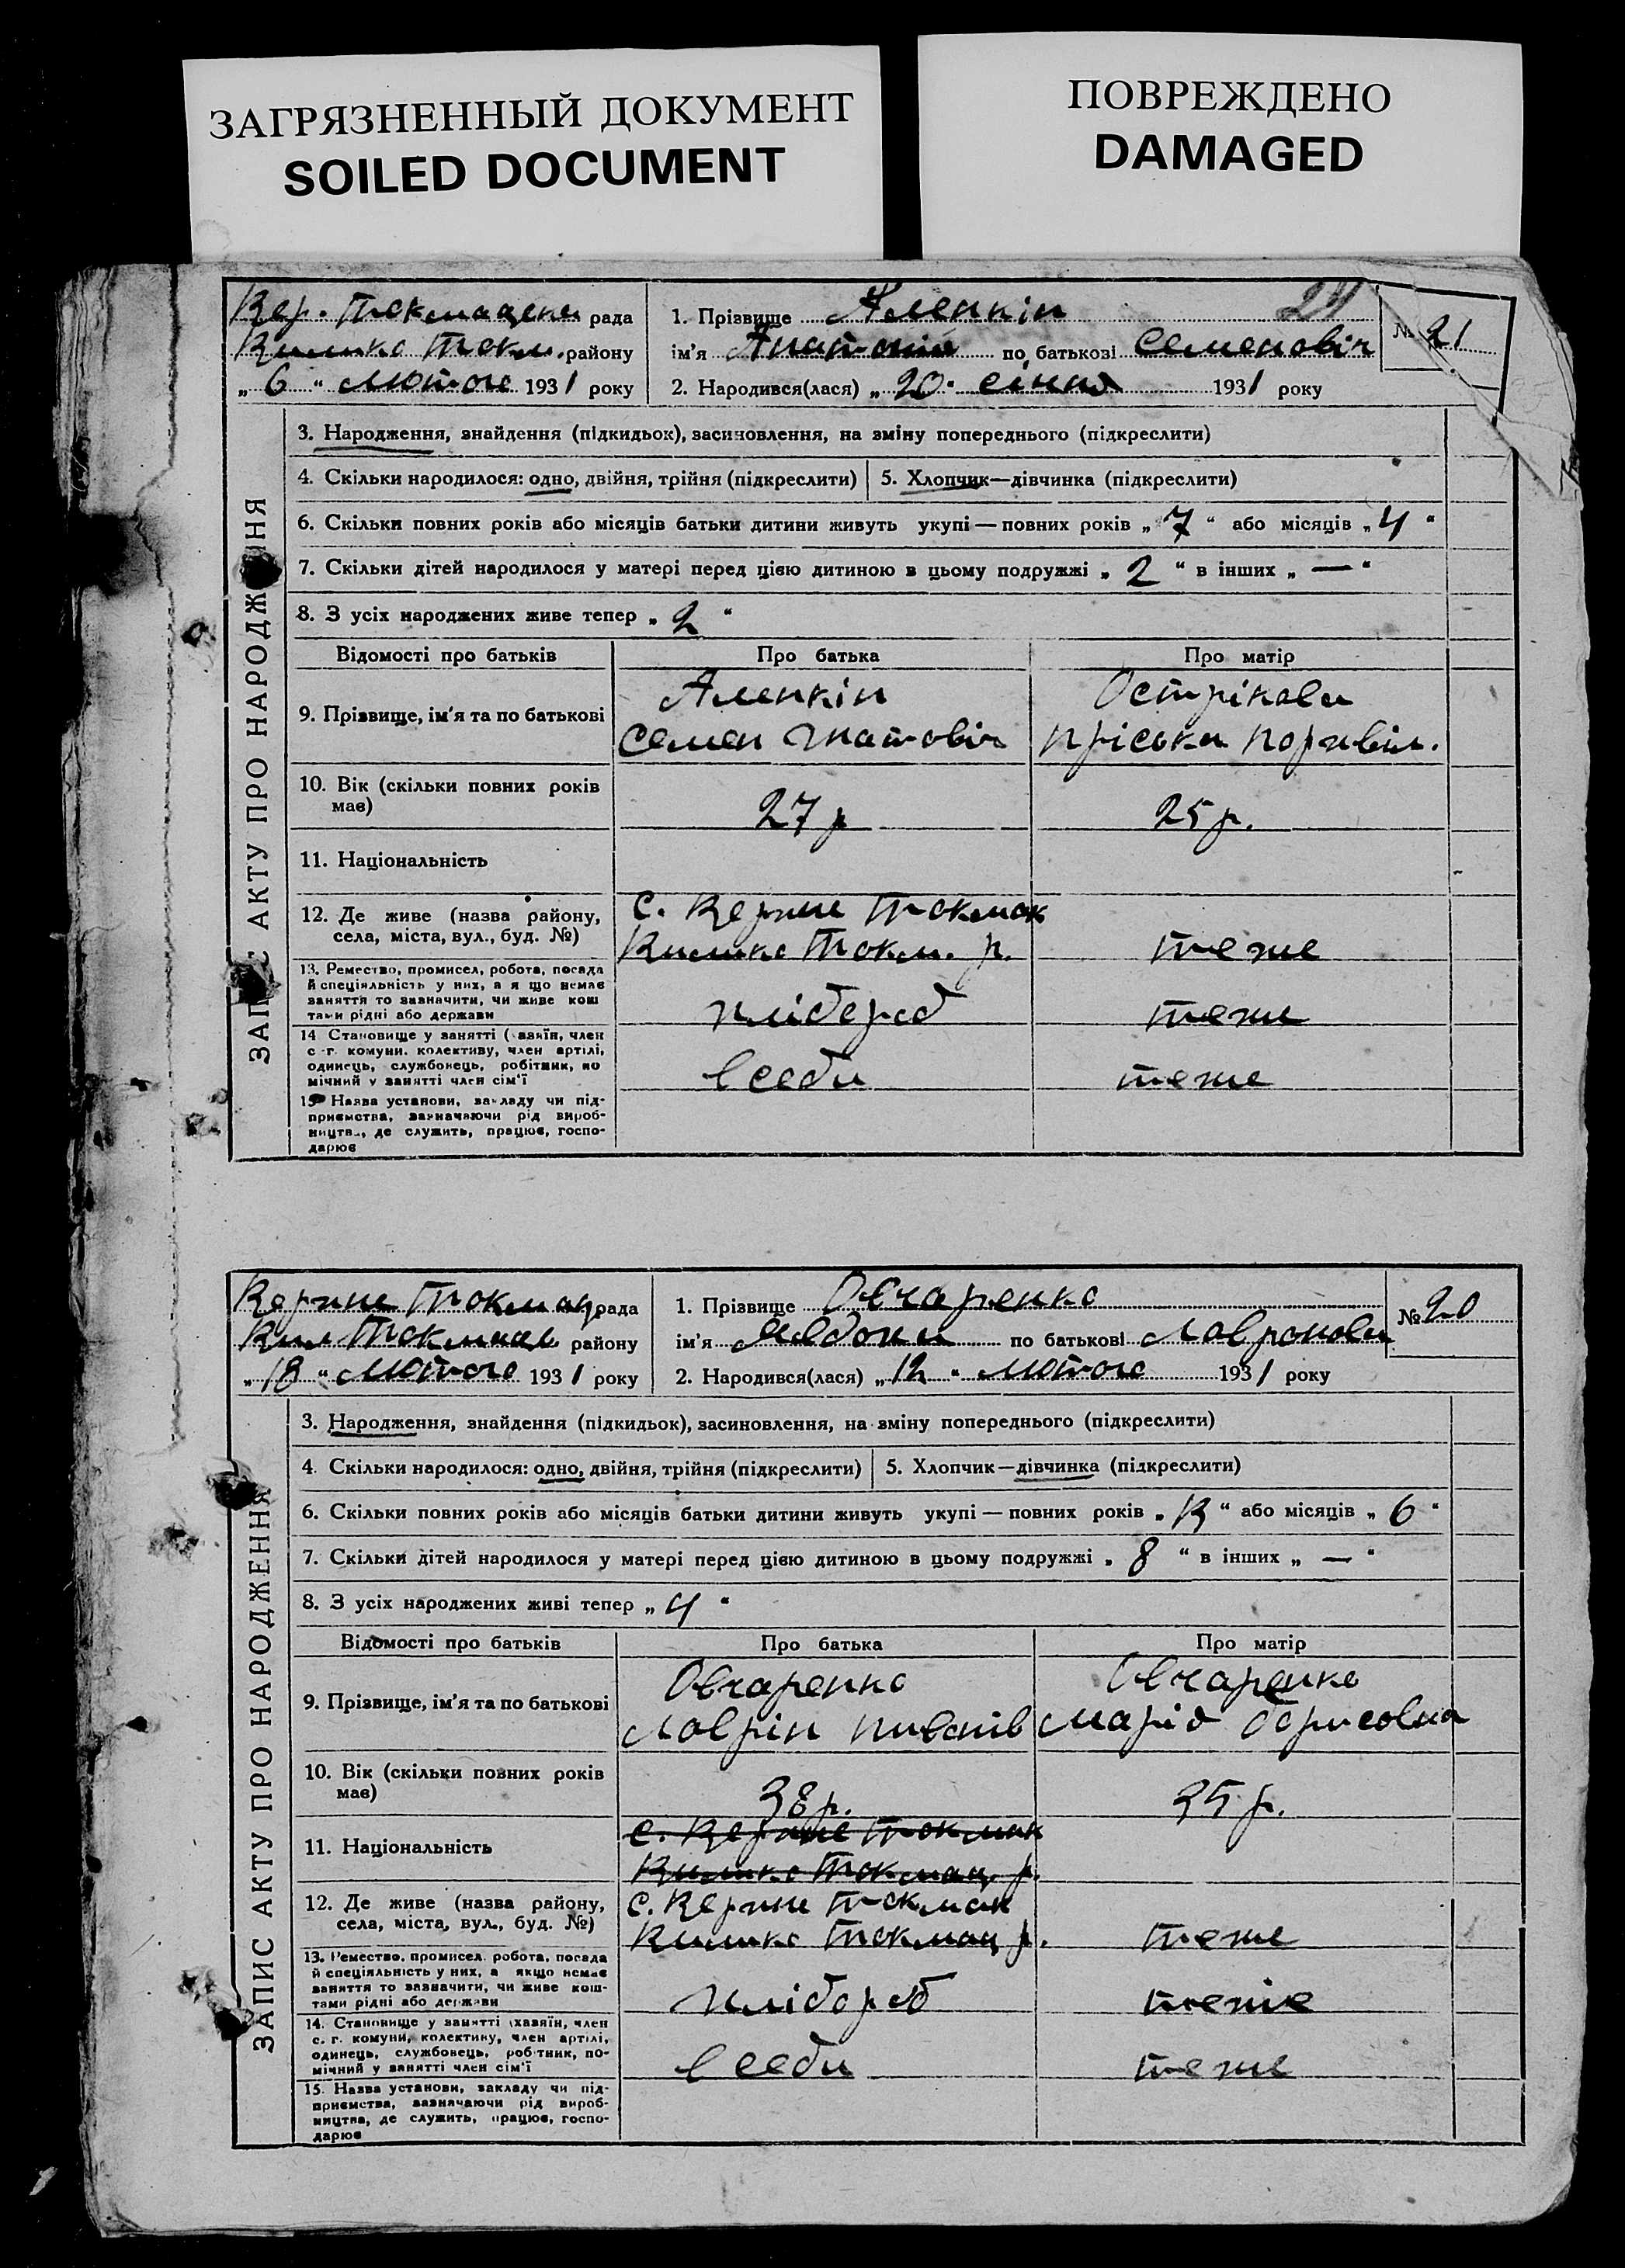 ЗАГРЯЗНЕННЫЙ ДОКУМЕНТ
SOILED DOCUMENT
ПОВРЕЖДЕНО
DAMAGED
рада
району
„ 6 “ Лютого 1931 року
1. Прізвище Аленкін
ім'я по батькові Семеновіч
2. Народився(лася) „ 20 “ січня 1931 року
№ 21
ЗАПИС АКТУ ПРО НАРОДЖЕННЯ
3. Народження, знайдення (підкидьок), засиновлення, на зміну попереднього (підкреслити)
4. Скільки народилося: одно, двійня, трійня (підкреслити)
5. Хлопчик—дівчинка (підкреслити)
6. Скільки повних років або місяців батьки дитини живуть укупі — повних років „ 7 “ або місяців „ 4 “
7. Скільки дітей народилося у матері перед цією дитиною в цьому подружжі „ 2 “ в інших „ — “
8. З усіх народжених живе тепер „ 2 “
Відомості про батьків
Про батька
Про матір
9. Прізвище, ім'я та по батькові
Аленкін
Семен Гнатовіч
Острікова
Пріська
10. Вік (скільки повних років
має)
27 р
25 р.
11. Національність
12. Де живе (назва району,
села, міста, вул., буд. №)
с. Верхне Токмак
Токм. р.
теже
13. Ремество, промисел, робота, посада
й спеціяльність у них, а я що немає
заняття то зазначити, чи живе кош
тами рідні або держави
хлібороб
теже
14 Становище у занятті (хазяїн, член
с.-г. комуни, колективу, член артілі,
одинець, службовець, робітник, по
мічний у занятті член сім'ї
в себи
теже
15 Назва установи, закладу чи під-
приємства, зазначаючи рід вироб-
ництва, де служить, працює, госпо-
дарює
Верхне Токмац рада
району
„ 18 “ Лютого 1931 року
1. Прізвище Овчаренко
ім'я Явдоха по батькові Лавронова
2. Народився(лася) „ 12 “ Лютого 1931 року
№ 20
ЗАПИС АКТУ ПРО НАРОДЖЕННЯ
3. Народження, знайдення (підкидьок), засиновлення, на зміну попереднього (підкреслити)
4. Скільки народилося: одно, двійня, трійня (підкреслити)
5. Хлопчик—дівчинка (підкреслити)
6. Скільки повних років або місяців батьки дитини живуть укупі — повних років або місяців „ 6 “
7. Скільки дітей народилося у матері перед цією дитиною в цьому подружжі „ 8 “ в інших „ — “
8. З усіх народжених живі тепер „ 4 “
Відомості про батьків
Про батька
Про матір
9. Прізвище, ім'я та по батькові
Овчаренко
Лаврін
Овчаренко
Марія Борисовна
10. Вік (скільки повних років
має)
38 р.
35 р.
11. Національність
с. Верхне Токмак
Токмац р.
12. Де живе (назва району,
села, міста, вул., буд. №)
с. Верхне Токмак
Токмац р.
теже
13. Ремество, промисел, робота, посада
й спеціяльність у них, а якщо немає
заняття то зазначити, чи живе кош-
тами рідні або держави
хлібороб
теже
14. Становище у занятті (хазяїн, член
с. г. комуни, колективу, член артілі,
одинець, службовець, робітник, по-
мічний у занятті член сім'ї
в себи
теже
15. Назва установи, закладу чи під-
приємства, зазначаючи рід вироб-
ництва, де служить, працює, госпо-
дарює